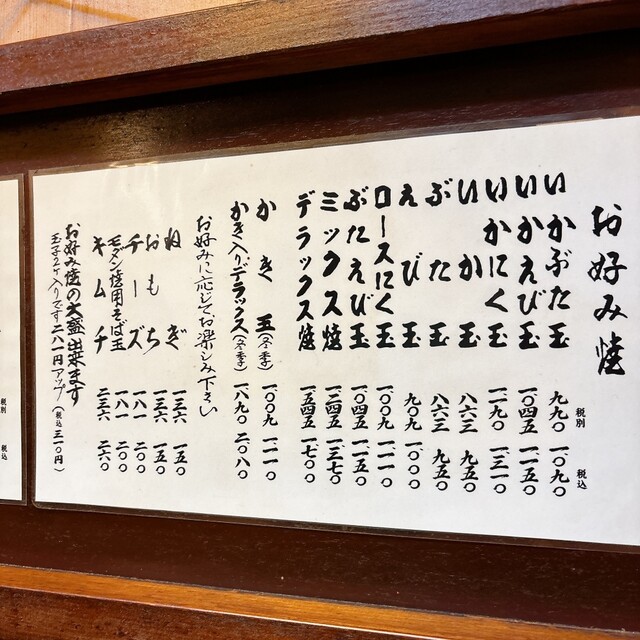 お好み焼
税別 税込
いかぶた玉 九九〇 一、〇九〇
いかえび玉 一、〇四五 一、一五〇
いかにく玉 一、一九〇 一、三一〇
いか玉 八六三 九五〇
ぶた玉 八六三 九五〇
えび玉 九〇九 一、〇〇〇
ロースにく玉 一、〇〇九 一、一一〇
ぶたえび玉 一、〇四五 一、一五〇
ミックス焼 一、二四五 一、三七〇
デラックス焼 一、五四五 一、七〇〇
かき玉(冬季) 一、〇〇九 一、一一〇
かき入りデラックス(冬季) 一、八九〇 二、〇八〇
お好みに応じてお楽しみ下さい
ねぎ 一三六 一五〇
おもち 一三六 一五〇
チーズ 一八一 二〇〇
モダン焼用そば玉 一八一 二〇〇
キムチ 二三六 二六〇
お好み焼の大盛出来ます
玉子2ヶ入りです二八一円アップ(税込三一〇円)
税別
税込